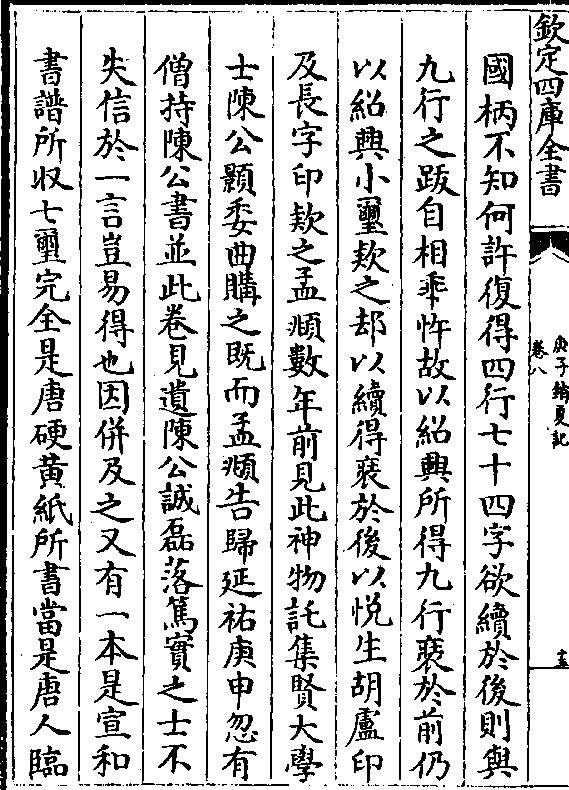 欽定四庫全書
庚子銷夏記
卷八
十五
國柄不知何許復得四行七十四字欲續於後則與
九行之跋自相乖忤故以紹興所得九行裒於前仍
以紹興小璽欵之却以續得裒於後以悦生胡盧印
及長字印欵之孟頫數年前見此神物託集賢大學
士陳公顥委曲購之既而孟頫告歸延祐庚申忽有
僧持陳公書並此卷見遺陳公誠磊落篤實之士不
失信於一言豈易得也因併及之又有一本是宣和
書譜所収七璽完全是唐硬黄紙所書當是唐人臨